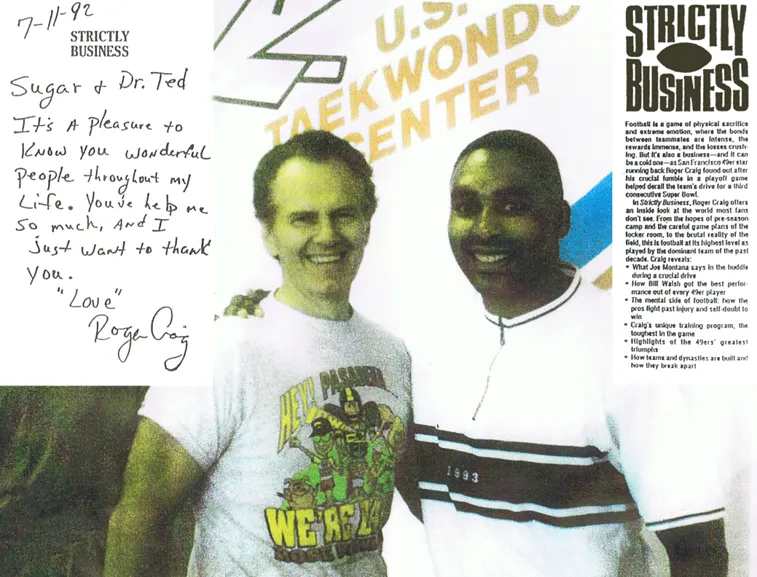 7-11-92
STRICTLY
BUSINESS
Sugar & Dr. Ted
It's A pleasure to
Know you wonderful
people throughout my
Life. You've help me
so much, And I
just want to thank
you.
"Love"
Roger Craig
U.S.
TAEKWONDO
CENTER
HEY! PASADENA
WE'RE
1993
STRICTLY
BUSINESS
Football is a game of physical sacrifice
and extreme emotion, where the bonds
between teammates are intense, the
rewards immense, and the losses crush-
ing. But it's also a business—and it can
be a cold one—as San Francisco 49er star
running back Roger Craig found out after
his crucial fumble in a playoff game
helped derail the team's drive for a third
consecutive Super Bowl.
In Strictly Business, Roger Craig offers
an inside look at the world most fans
don't see. From the hopes of pre-season
camp and the careful game plans of the
locker room, to the brutal reality of the
field, this is football at its highest level as
played by the dominant team of the past
decade. Craig reveals:
• What Joe Montana says in the huddle
during a crucial drive
• How Bill Walsh got the best perfor-
mance out of every 49er player
• The mental side of football: how the
pros fight past injury and self-doubt to
win
• Craig's unique training program, the
toughest in the game
• Highlights of the 49ers' greatest
triumphs
• How teams and dynasties are built and
how they break apart